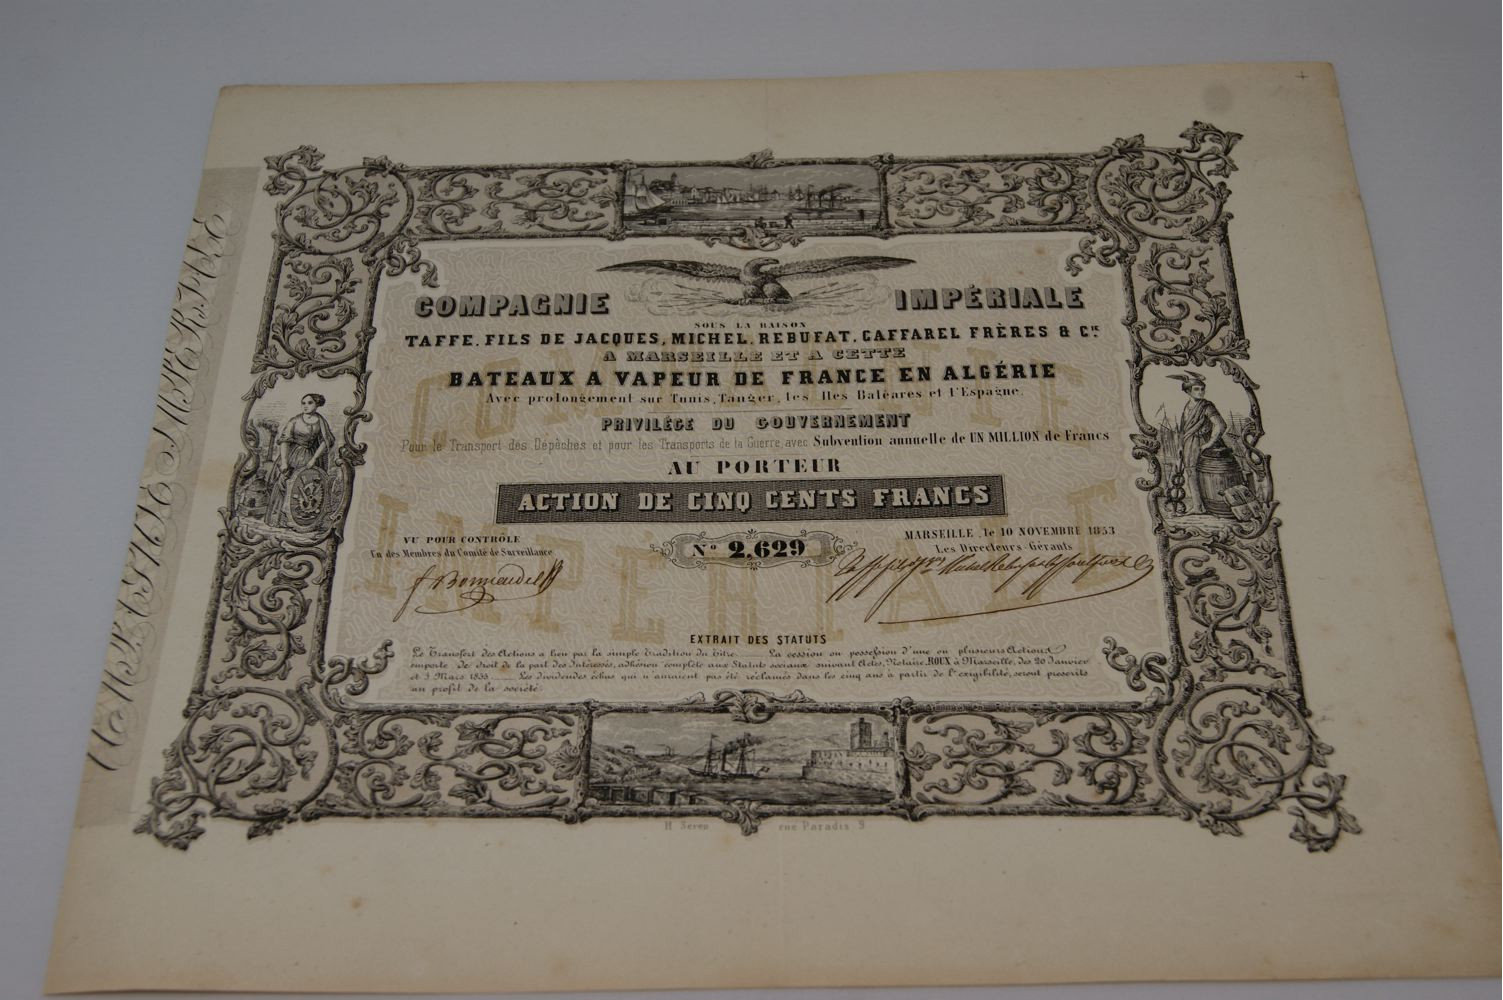 COMPAGNIE IMPÉRIALE
COMPAGNIE IMPÉRIALE
SOUS LA RAISON
TAFFE, FILS DE JACQUES, MICHEL, REBUFAT, CAFFAREL FRÈRES & Cie
A MARSEILLE ET A CETTE
BATEAUX A VAPEUR DE FRANCE EN ALGÉRIE
Avec prolongement sur Tunis, Tanger, les Iles Baléares et l'Espagne.
PRIVILÉGE DU GOUVERNEMENT
Pour le Transport des Dépêches et pour les Transports de la Guerre, avec Subvention annuelle de UN MILLION de Francs
AU PORTEUR
ACTION DE CINQ CENTS FRANCS
COMPAGNIE
IMPERIALE
VU POUR CONTRÔLE
Un des Membres du Comité de Surveillance
No 2,629
MARSEILLE, le 10 NOVEMBRE 1853
Les Directeurs-Gérants
EXTRAIT DES STATUTS
Le Transfert des Actions a lieu par la simple tradition du Titre. La cession ou possession d'une ou plusieurs Actions
emporte de droit de la part des Intéressés, adhésion complète aux Statuts sociaux suivant Actes, Notaire, ROUX à Marseille, des 20 Janvier
et 3 Mars 1853 Les dividendes échus qui n'auraient pas été réclamés dans les cinq ans à partir de l'exigibilité, seront prescrits
au profit de la société.
H Seren rue Paradis 9